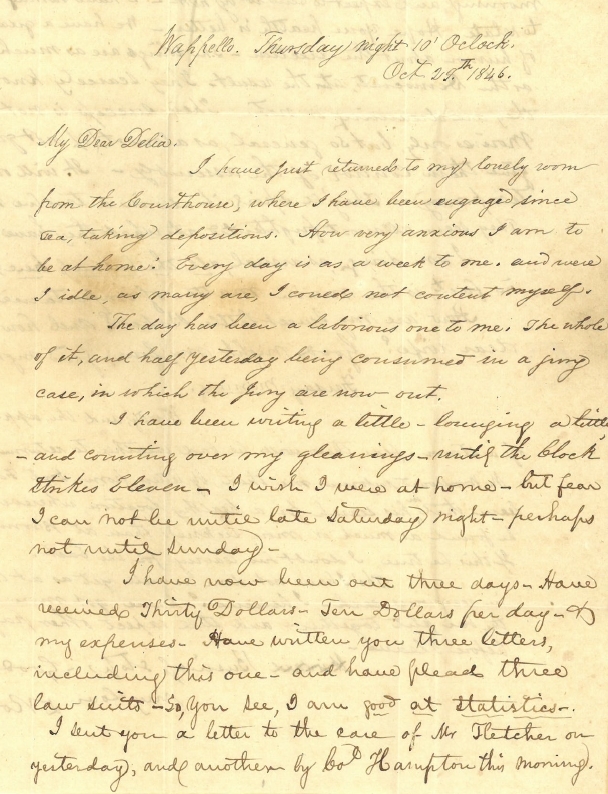 Wappello. Thursday night 10' Oclock.
Oct 29.th 1846.
My Dear Delia.
I have just returned to my lonely room
from the Courthouse, where I have been engaged since
Tea, taking depositions. How very anxious I am to
be at home! Every day is as a week to me. and were
I idle, as many are, I could not content myself.
The day has been a laborious one to me. The whole
of it, and half yesterday being consumed in a jury
case, in which the Jury are now out.
I have been writing a little - lounging a little
- and counting over my gleanings - until the Clock
strikes Eleven - I wish I were at home - but fear
I can not be until late Saturday night - perhaps
not until Sunday -
I have now been out three days - Have
received Thirty Dollars - Ten Dollars per day - &
my expenses - Have written you three letters,
including this one - and have plead three
law suits - So, you see, I am good at statistics -.
I sent you a letter to the care of Mr Fletcher on
yesterday, and another by Col Hampton this morning.